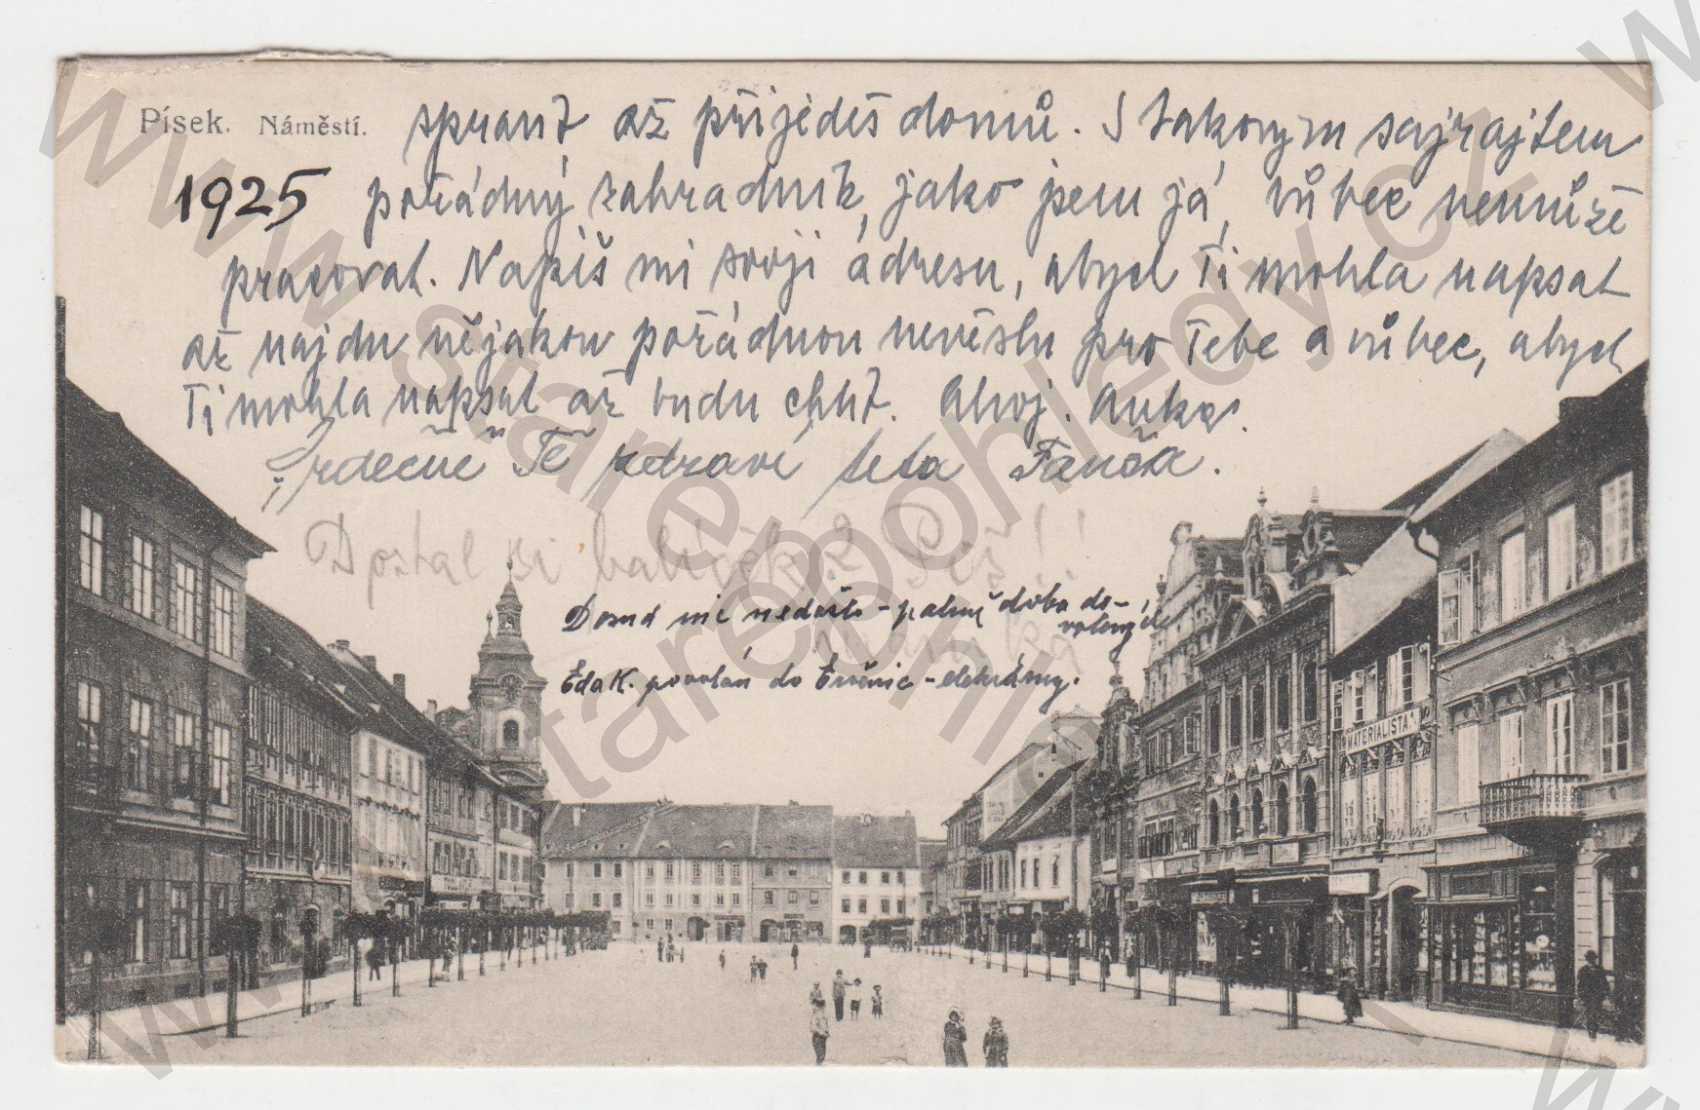 Písek. Náměstí.
spravit až přijedeš domů. S takovým sajrajtem
1925
pořádný zahradník, jako jsem já, vůbec nemůže
pracovat. Napiš mi svoji adresu, abych Ti mohla napsat
až najdu nějakou pořádnou nevěstu pro Tebe a vůbec, abych
Ti mohla napsat až budu chtít. Ahoj. Anka.
Srdečně Tě zdraví teta Fančа.
Dostal si balíček? Piš!!
Dosud nic nedošlo - patrně doba do-
volených
Eda K. povolán do - elektrárny.
MATERIALISTA
www.starepohledy.cz